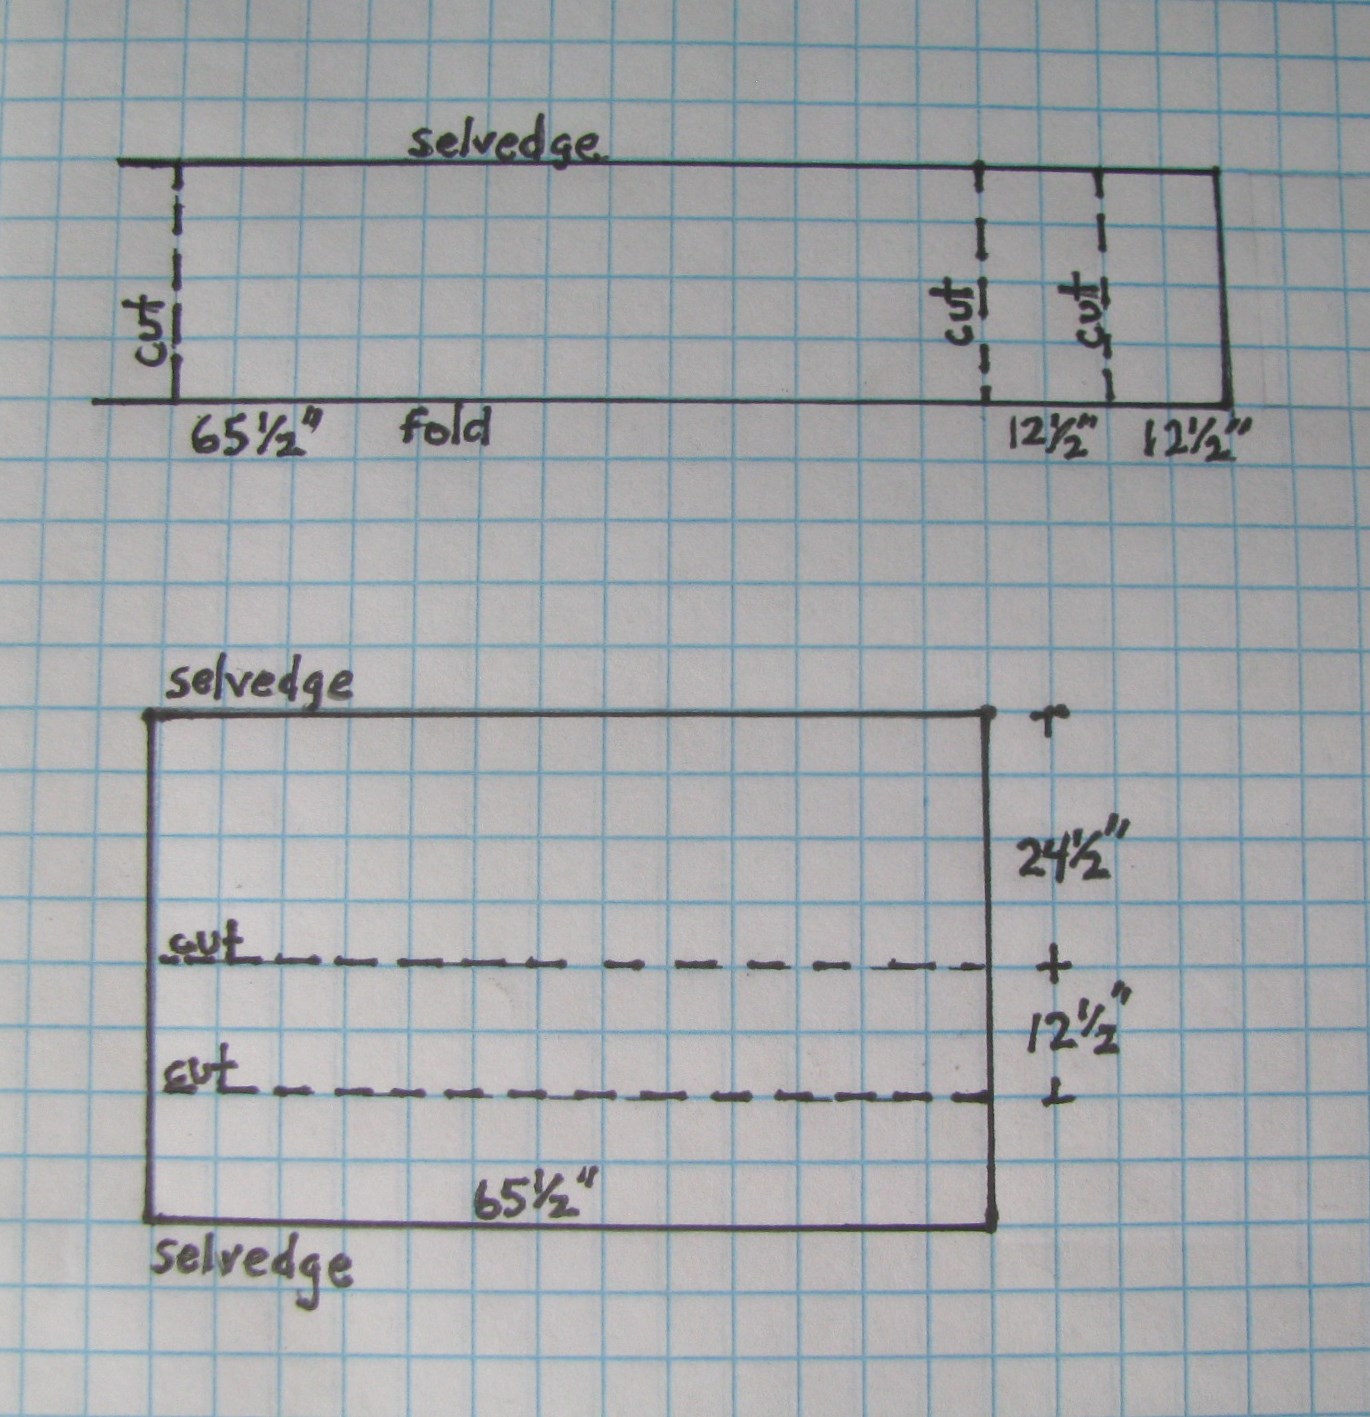 selvedge
cut
cut
cut
65 1/2" fold 12 1/2" 12 1/2"
selvedge
24 1/2"
cut
12 1/2"
cut
65 1/2"
selvedge